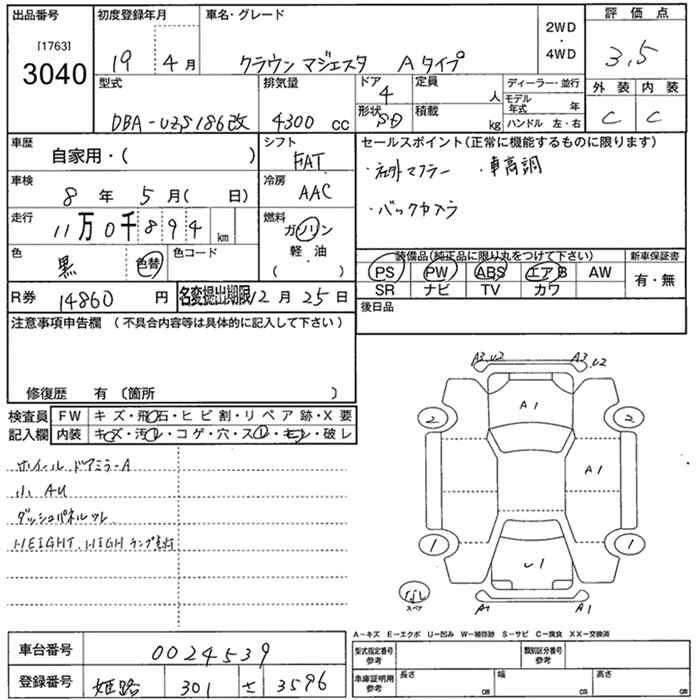 出品番号 初度登録年月 車名・グレード 2WD・4WD 評価点
[1763]
3040
19年4月 クラウン マジェスタ Aタイプ 3,5
型式 排気量 ドア 4 定員 人 ディーラー・並行 外装 内装
DBA-UZS186改 4300cc 形状 SD 積載 kg モデル年式 年 C C
ハンドル 左・右
車歴 シフト セールスポイント(正常に機能するものに限ります)
自家用・( ) FAT
・社外マフラー ・車高調
車検 冷房
8年 5月( 日) AAC
・バックカメラ
走行 燃料
11万0千894km ガソリン
軽・油
( )
色 色替 色コード
黒
装備品(純正品に限り丸をつけて下さい) 新車保証書
PS PW ABS エアB AW 有・無
SR ナビ TV カワ
R券 14860円 名変提出期限12月25日
後日品
注意事項申告欄 (不具合内容等は具体的に記入して下さい)
修復歴 有 (箇所 )
検査員 FW キズ・飛石・ヒビ割・リペア跡・X要
記入欄 内装 キズ・汚レ・コゲ・穴・スレ・モン・破レ
ホイール ドアミラーA
小 AU
ダッシュパネルワレ
HEIGHT.HIGHランプ点灯
A3.U2 A3.U2
A1
2 2
A1
1 1
U1
なし
スペア
A1 A1
A-キズ E-エクボ U-凹み W-補修跡 S-サビ C-腐食 XX-交換済
車台番号 0024539
型式指定番号 参考 類別区分番号 参考
登録番号 姫路 301 さ 3596
車庫証明用 参考 長さ cm 幅 cm 高さ cm